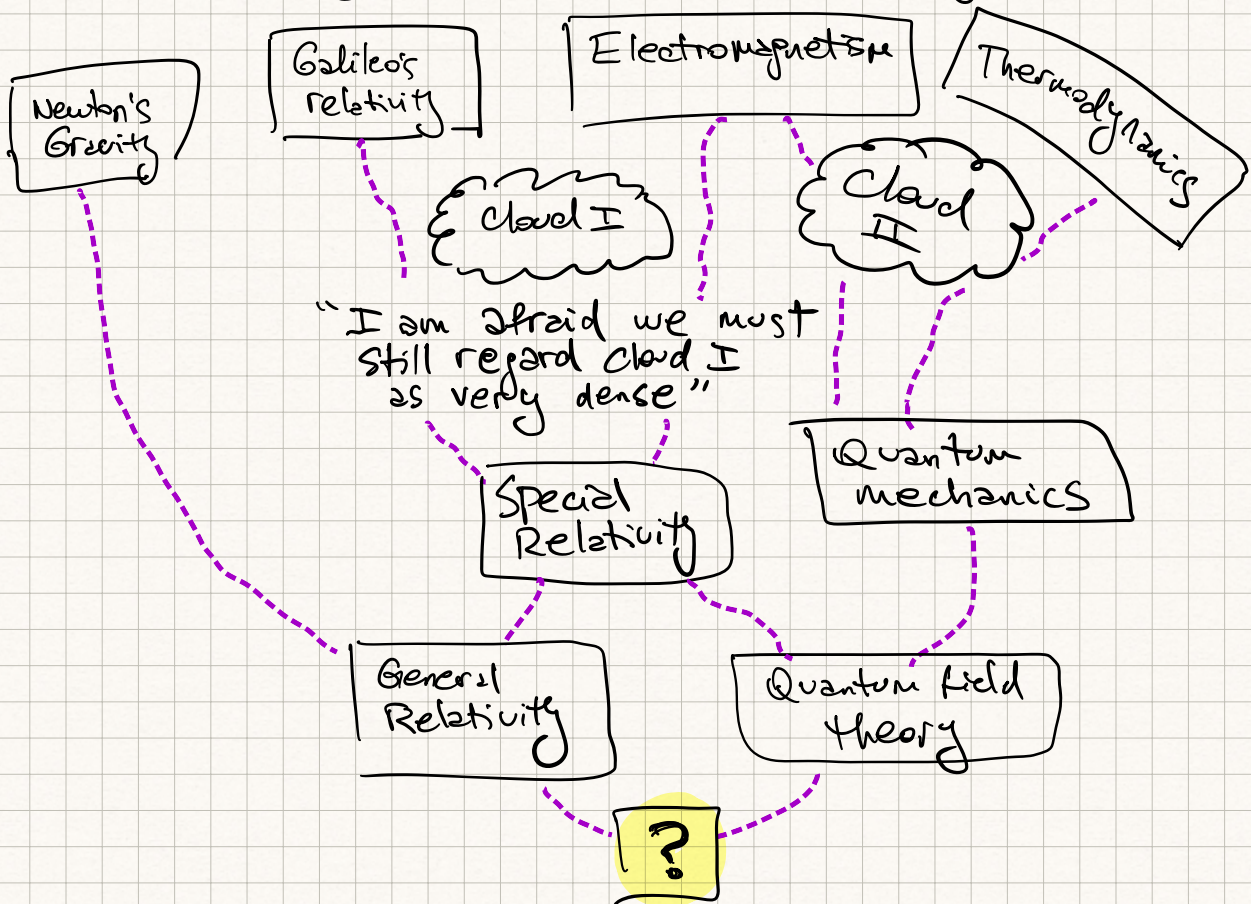 Newton's
Gravity
Galileo's
relativity
Electromagnetism
Thermodynamics
Cloud I
Cloud
II
"I am afraid we must
still regard Cloud I
as very dense"
Special
Relativity
Quantum
mechanics
General
Relativity
Quantum field
theory
?